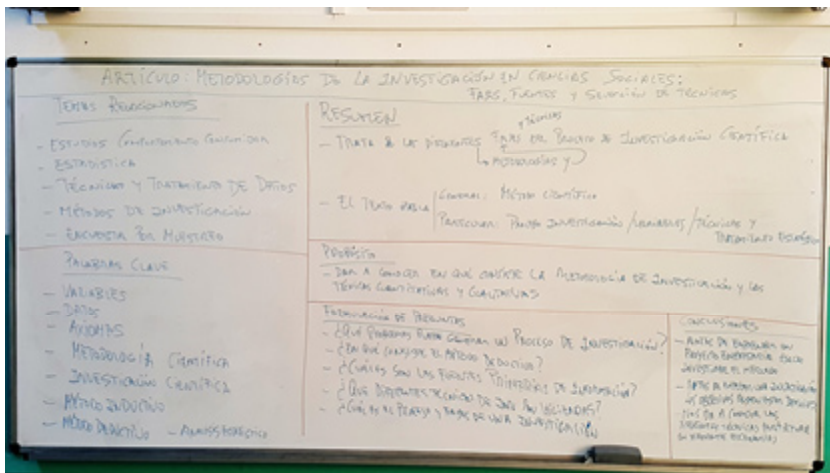 ARTÍCULO: METODOLOGÍAS DE LA INVESTIGACIÓN EN CIENCIAS SOCIALES:
FASES, FUENTES Y SELECCIÓN DE TÉCNICAS
TEMAS RELACIONADOS
- ESTUDIOS COMPORTAMIENTO CONSUMIDOR
- ESTADISTICA
- TÉCNICAS Y TRATAMIENTO DE DATOS
- MÉTODOS DE INVESTIGACIÓN
- ENCUESTA POR MUESTREO
PALABRAS CLAVE
- VARIABLES
- DATOS
- AXIOMAS
- METODOLOGÍA CIENTÍFICA
- INVESTIGACIÓN CIENTÍFICA
- MÉTODO INDUCTIVO
- MÉTODO DEDUCTIVO - ANALISIS ESTADÍSTICO
RESUMEN
Y TÉCNICAS
- TRATA DE LAS DIFERENTES FASES DEL PROCESO DE INVESTIGACIÓN CIENTÍFICA
METODOLOGÍAS Y
- EL TEXTO HABLA GENERAL: MÉTODO CIENTÍFICO
PARTICULAR: PROCESO INVESTIGACIÓN / VARIABLES / TÉCNICAS Y
TRATAMIENTO ESTADÍSTICO
PROPÓSITO
- DAR A CONOCER EN QUÉ CONSISTE LA METODOLOGÍA DE INVESTIGACIÓN Y LAS
TÉCNICAS CUANTITATIVAS Y CUALITATIVAS
FORMULACIÓN DE PREGUNTAS
- ¿QUÉ PROBLEMAS PUEDE GENERAR UN PROCESO DE INVESTIGACIÓN?
- ¿EN QUÉ CONSISTE EL MÉTODO DEDUCTIVO?
- ¿CUÁLES SON LAS FUENTES PRIMARIAS DE INFORMACIÓN?
- ¿QUÉ DIFERENTES TÉCNICAS DE SON UTILIZADAS?
- ¿CUÁL ES EL PROCESO Y FASES DE UNA INVESTIGACIÓN
CONCLUSIONES
- ANTES DE EMPRENDER UN
PROYECTO EMPRESARIAL
INVESTIGAR EL MERCADO
- ANTES DE UNA INVESTIGACIÓN
LOS OBJETIVOS
- NOS DA A CONOCER LAS
DIFERENTES TÉCNICAS